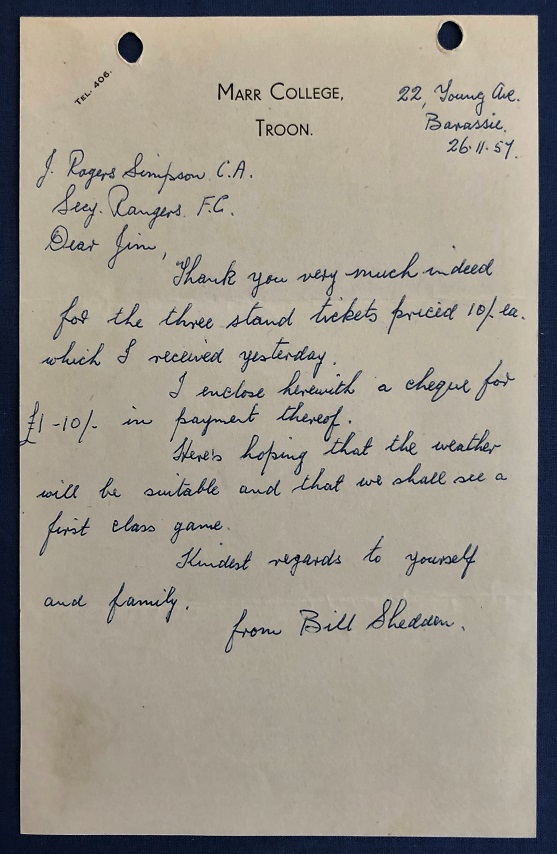 TEL. 406.
MARR COLLEGE,
TROON.
22, Young Ave.
Barassie.
26.11.57.
J. Rogers Simpson C.A.
Secy. Rangers F.C.
Dear Jim,
Thank you very much indeed
for the three stand tickets priced 10/- ea.
which I received yesterday.
I enclose herewith a cheque for
£1-10/- in payment thereof.
Here's hoping that the weather
will be suitable and that we shall see a
first class game.
Kindest regards to yourself
and family.
from Bill Shedden.